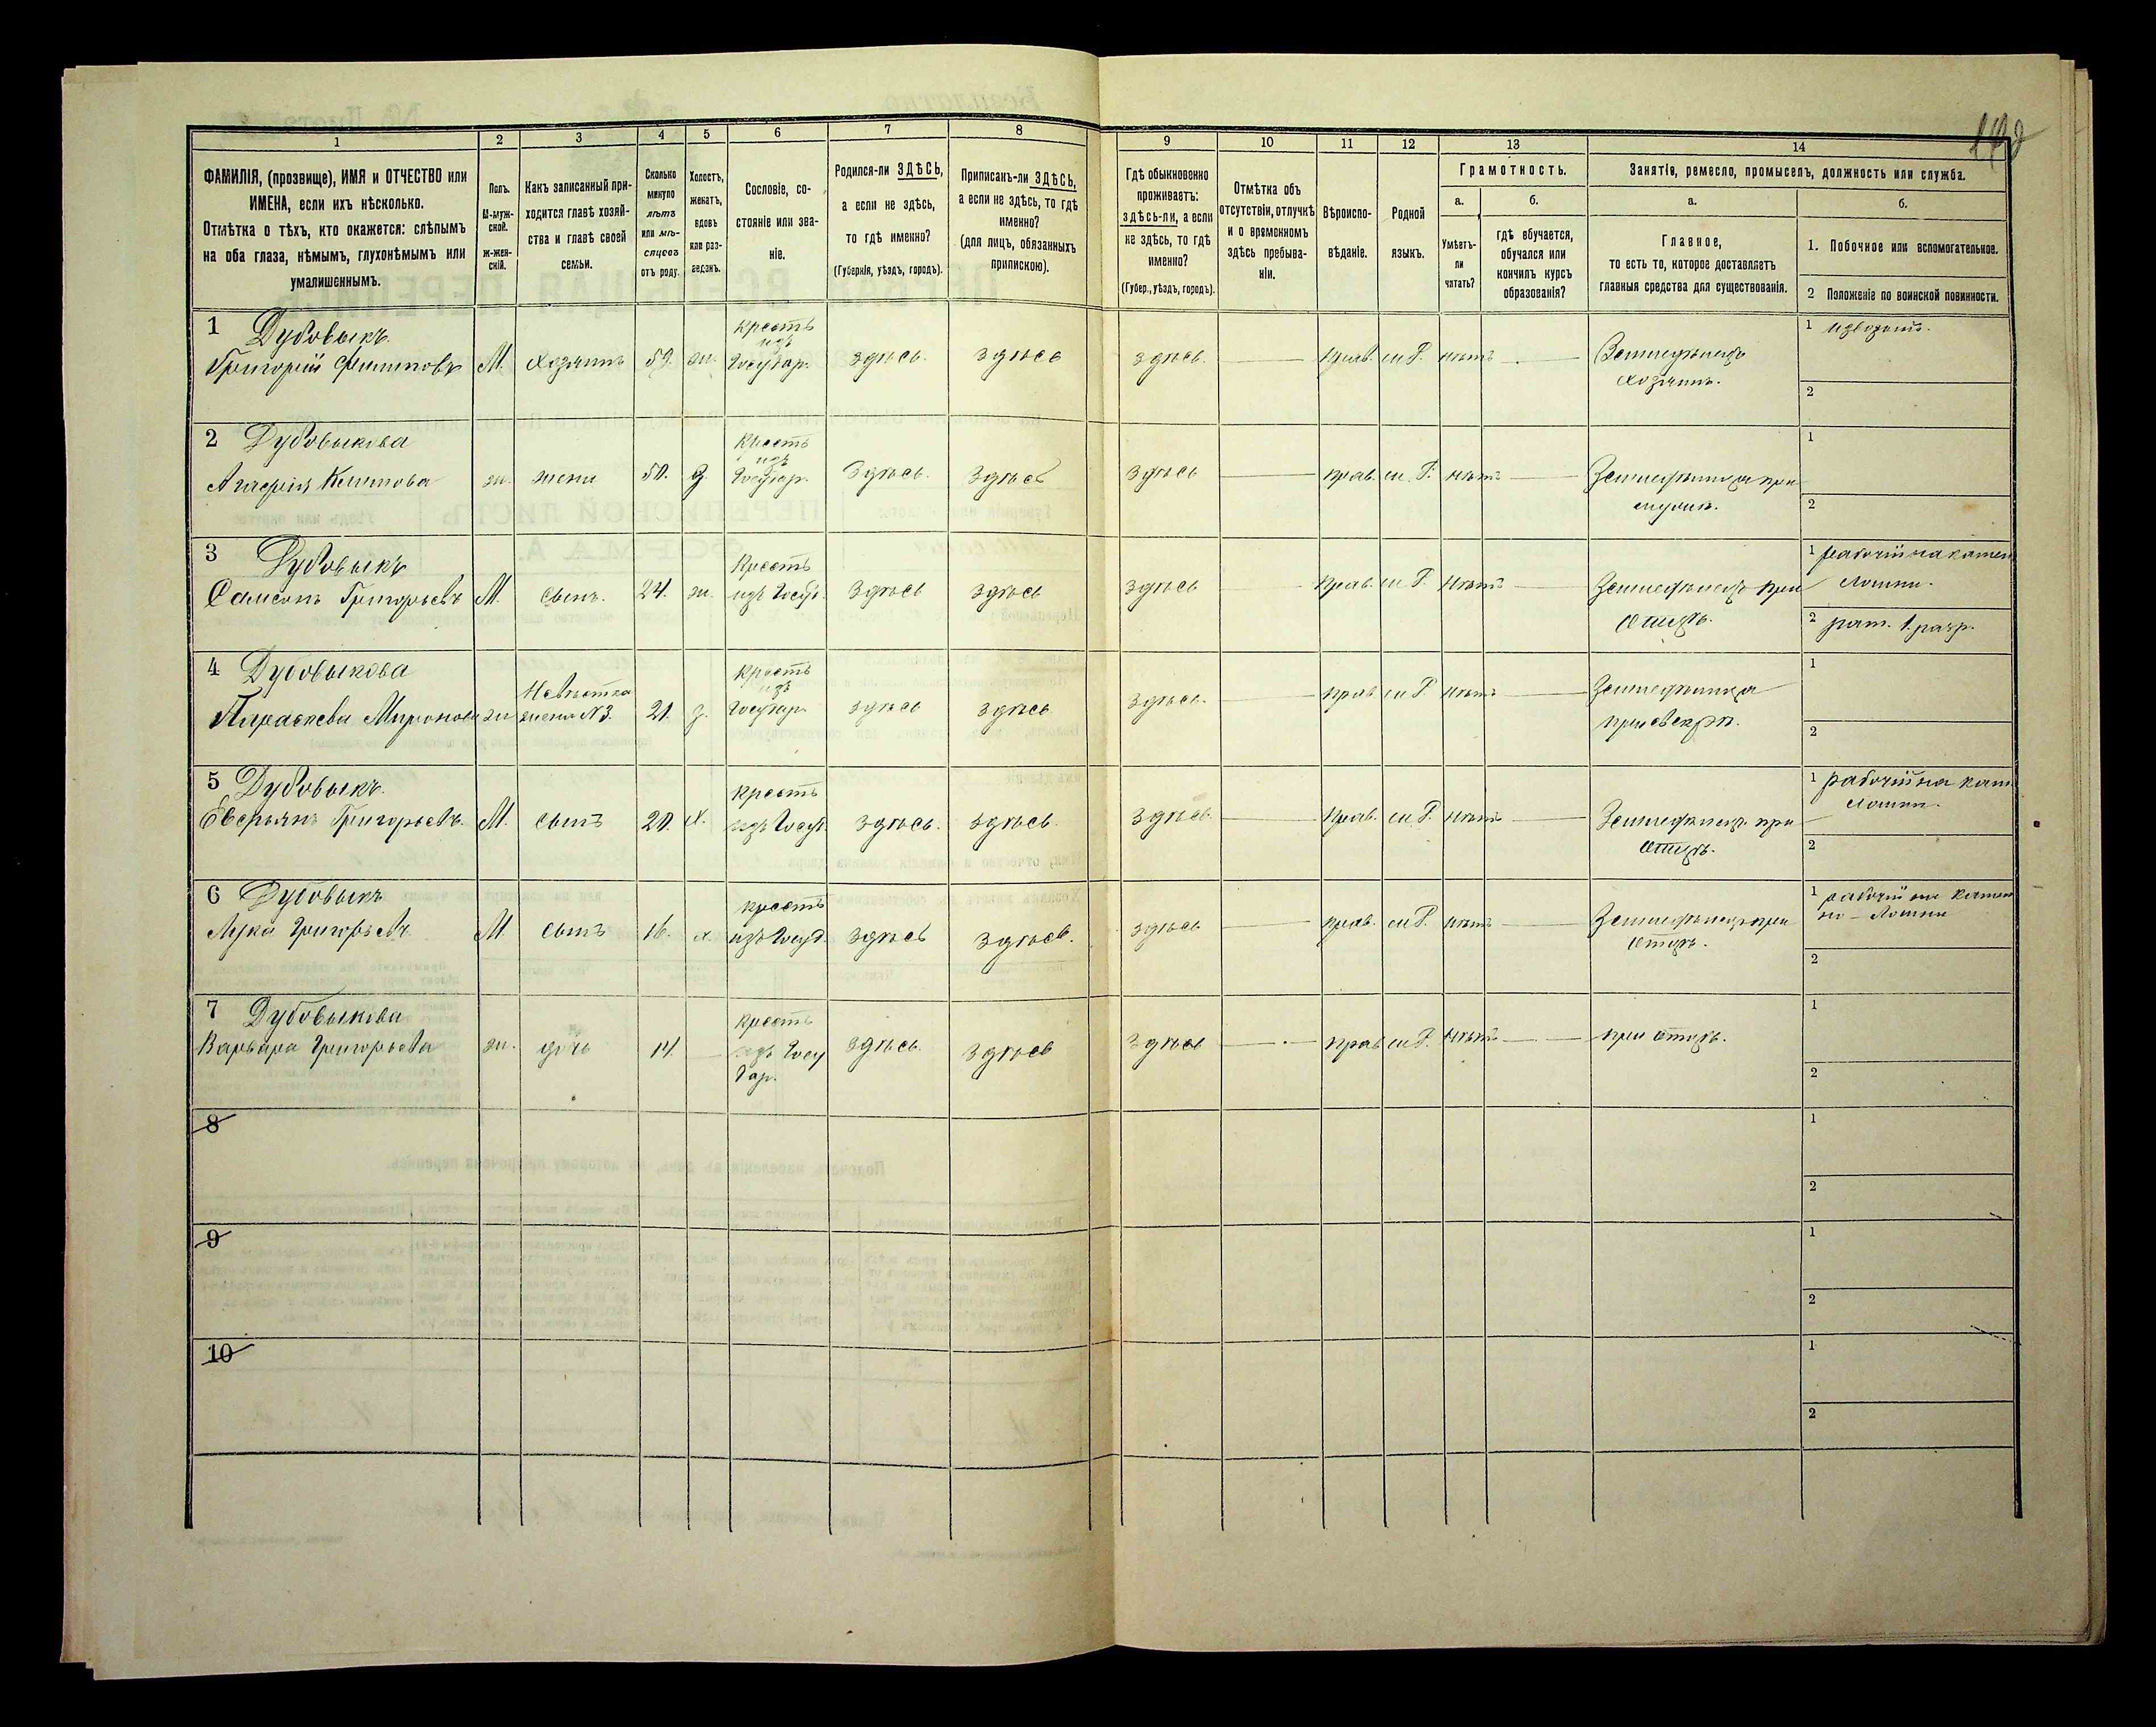 1
2
3
4
5
6
7
8
ФАМИЛІЯ, (прозвище), ИМЯ и ОТЧЕСТВО или
ИМЕНА, если ихъ нѣсколько.
Отмѣтка о тѣхъ, кто окажется: слѣпымъ
на оба глаза, нѣмымъ, глухонѣмымъ или
умалишеннымъ.
Полъ.
М-муж-
ской.
ж-жен-
скій.
Какъ записанный при-
ходится главѣ хозяй-
ства и главѣ своей
семьи.
Сколько
минуло
лѣтъ
или мѣ-
сяцевъ
отъ роду.
Холостъ,
женатъ,
вдовъ
или раз-
веденъ.
Сословіе, со-
стояніе или зва-
ніе.
Родился-ли ЗДѢСЬ,
а если не здѣсь,
то гдѣ именно?
(Губернія, уѣздъ, городъ).
Приписанъ-ли ЗДѢСЬ,
а если не здѣсь, то гдѣ
именно?
(для лицъ, обязанныхъ
припискою).
1 Дубовыкъ.
Григорій Филиповъ М. хозяинъ 59. ж. Крестъ изъ Государ. здѣсь. здѣсь
2 Дубовыкова
ж. жена 50. з. Крестъ изъ Государ. Здѣсь. Здѣсь
3 Дубовыкъ
Самсонъ Григорьевъ М. сынъ. 24. ж. Крестъ изъ Госуд. Здѣсь здѣсь
4 Дубовыкова
Параскева Миронова ж Невѣстка жена №3. 21. з. Крестъ изъ Государ. здѣсь здѣсь
5 Дубовыкъ.
Григорьевъ. М. сынъ 20. х. Крестъ изъ Госуд. здѣсь. здѣсь.
6 Дубовыкъ
Лука Григорьевъ М сынъ 16. х. Крестъ изъ Госуд. здѣсь здѣсь.
7 Дубовыкова
Варвара Григорьева ж. дочь 14. Крестъ изъ Госу дар. здѣсь. здѣсь
8
9
10
9
10
11
12
13
14
Гдѣ обыкновенно
проживаетъ:
здѣсь-ли, а если
не здѣсь, то гдѣ
именно?
(Губер., уѣздъ, городъ).
Отмѣтка объ
отсутствіи, отлучкѣ
и о временномъ
здѣсь пребыва-
ніи.
Вѣроиспо-
вѣданіе.
Родной
языкъ.
Грамотность.
а.
Умѣетъ-
ли
читать?
б.
гдѣ обучается,
обучался или
кончилъ курсъ
образованія?
Занятіе, ремесло, промыселъ, должность или служба.
а.
Главное,
то есть то, которое доставляетъ
главныя средства для существованія.
б.
1. Побочное или вспомогательное.
2 Положеніе по воинской повинности.
здѣсь. прав. м Р. нѣтъ Земледѣлецъ хозяинъ. 1 извозчикъ.
2
здѣсь прав. м. Р. нѣтъ Земледѣлица при мужѣ. 1
2
здѣсь прав. м Р. нѣтъ Земледѣлецъ при отцѣ. 1 рабочій на камен ломни.
2 рат. 1. разр.
здѣсь. прав м Р нѣтъ Земледѣлица при свекрѣ. 1
2
здѣсь. прав. м Р. нѣтъ Земледѣлецъ при отцѣ. 1 рабочій на кам. ломни.
2
здѣсь прав. м Р. нѣтъ Земледѣлецъ при отцѣ. 1 рабочій на камен но-ломни
2
здѣсь прав м Р. нѣтъ при отцѣ. 1
2
1
2
1
2
1
2